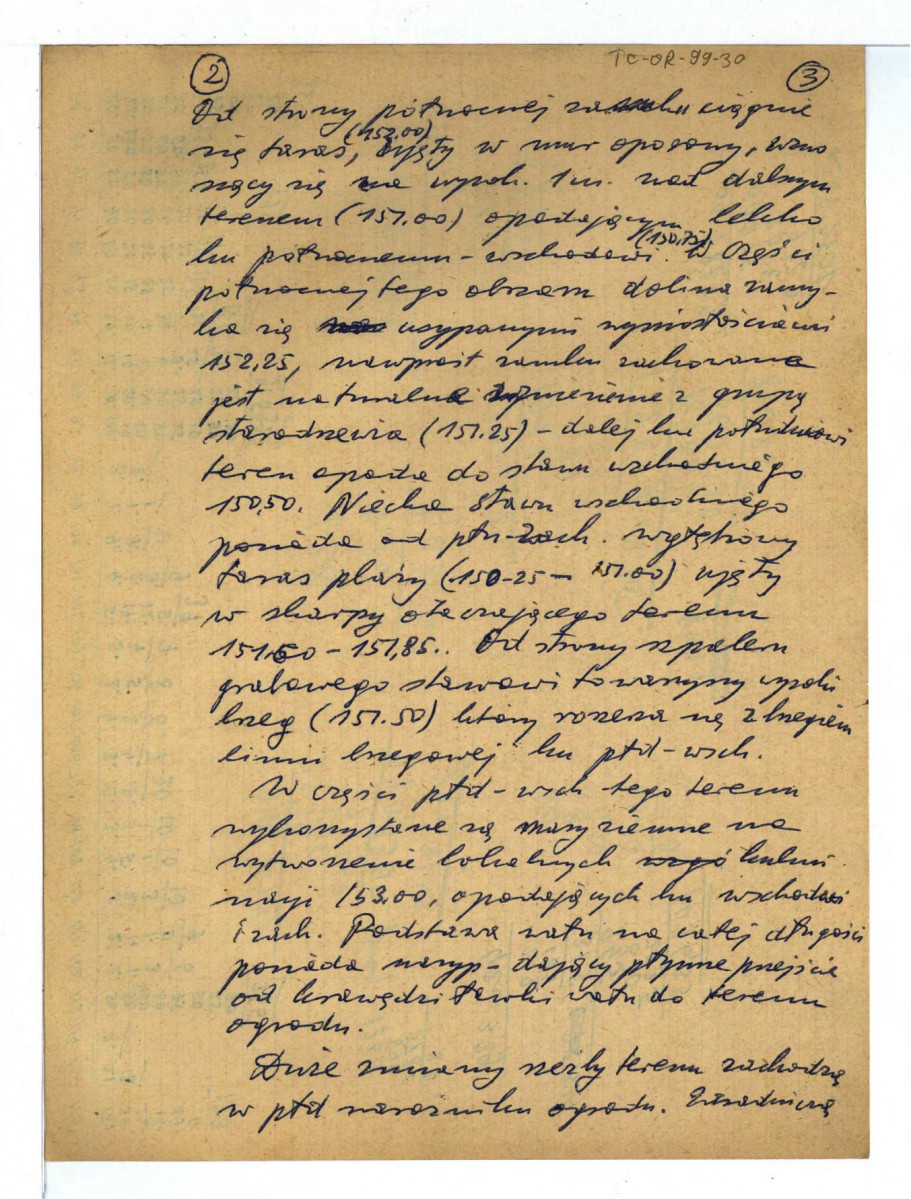 TC-OR-99-30
2 3
Od strony północnej zamku ciągnie
się taras, (152,00) ujęty w mur oporowy, wzno
szący się na wysok. 1 m. nad dalszym
terenem (151.00) opadającym lekko
ku północnemu-wschodowi (150,75). W części
północnej tego obszaru dolina zamy-
ka się usypanymi wyniosłościami
152,25, nawprost zamku zachowane
jest naturalne wzniesienie z grupą
starodrzewia (151.25) – dalej ku południowi
teren opada do stawu wschodniego
150,50. Niecka stawu wschodniego
posiada od płn-zach. wygłębiony
taras plaży (150-25 – 151.00) ujęty
w skarpy otaczającego terenu
151,60 – 151,85.. Od strony szpaleru
grabowego stawowi towarzyszy wysoki
brzeg (151.50) który rozszerza się z biegiem
linii brzegowej ku płd-wsch.
W części płd-wsch tego terenu
wykorzystane są masy ziemne na
wytworzenie lokalnych kulmi
nacji 153.00, opadających ku wschodowi
i zach. Podstawa wału na całej długości
posiada nasyp – dający płynne przejście
od krawędzi ławki wału do terenu
ogrodu.
Duże zmiany rzeźby terenu zachodzą
w płd narożniku ogrodu. Zasadniczą